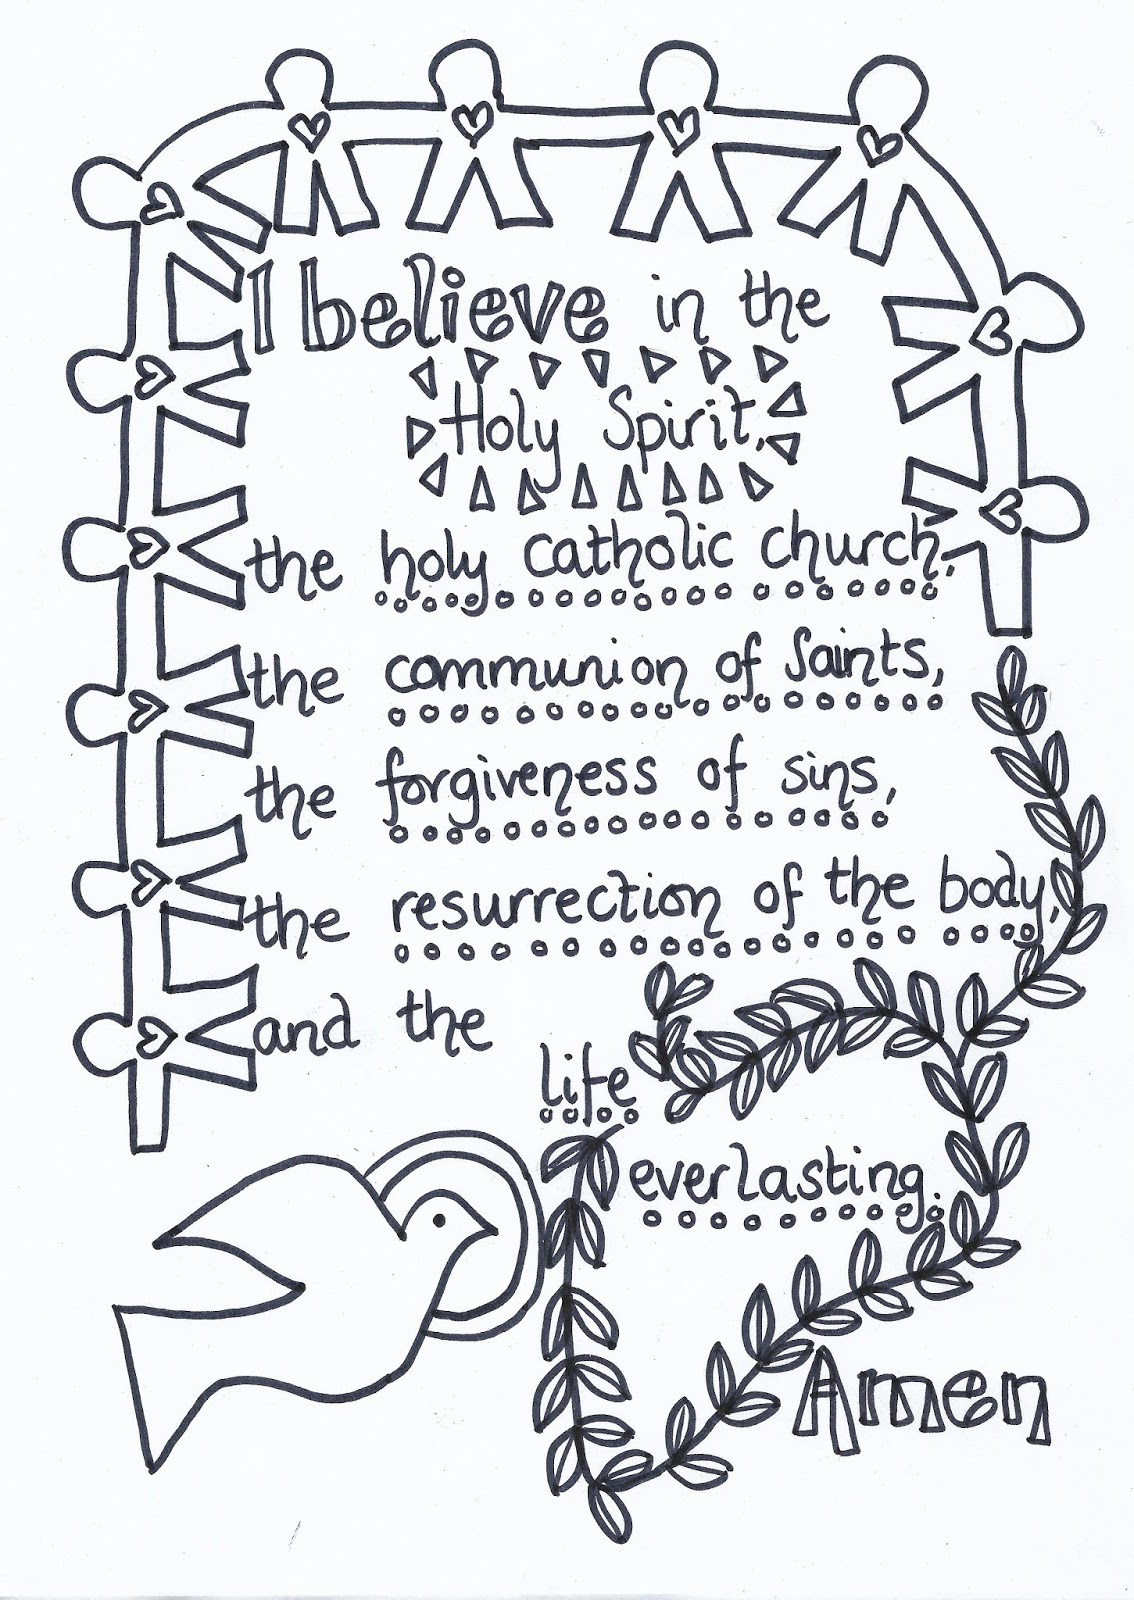 I believe in the
Holy Spirit,
the holy catholic church,
the communion of Saints,
the forgiveness of sins,
the resurrection of the body,
and the
life
everlasting.
Amen